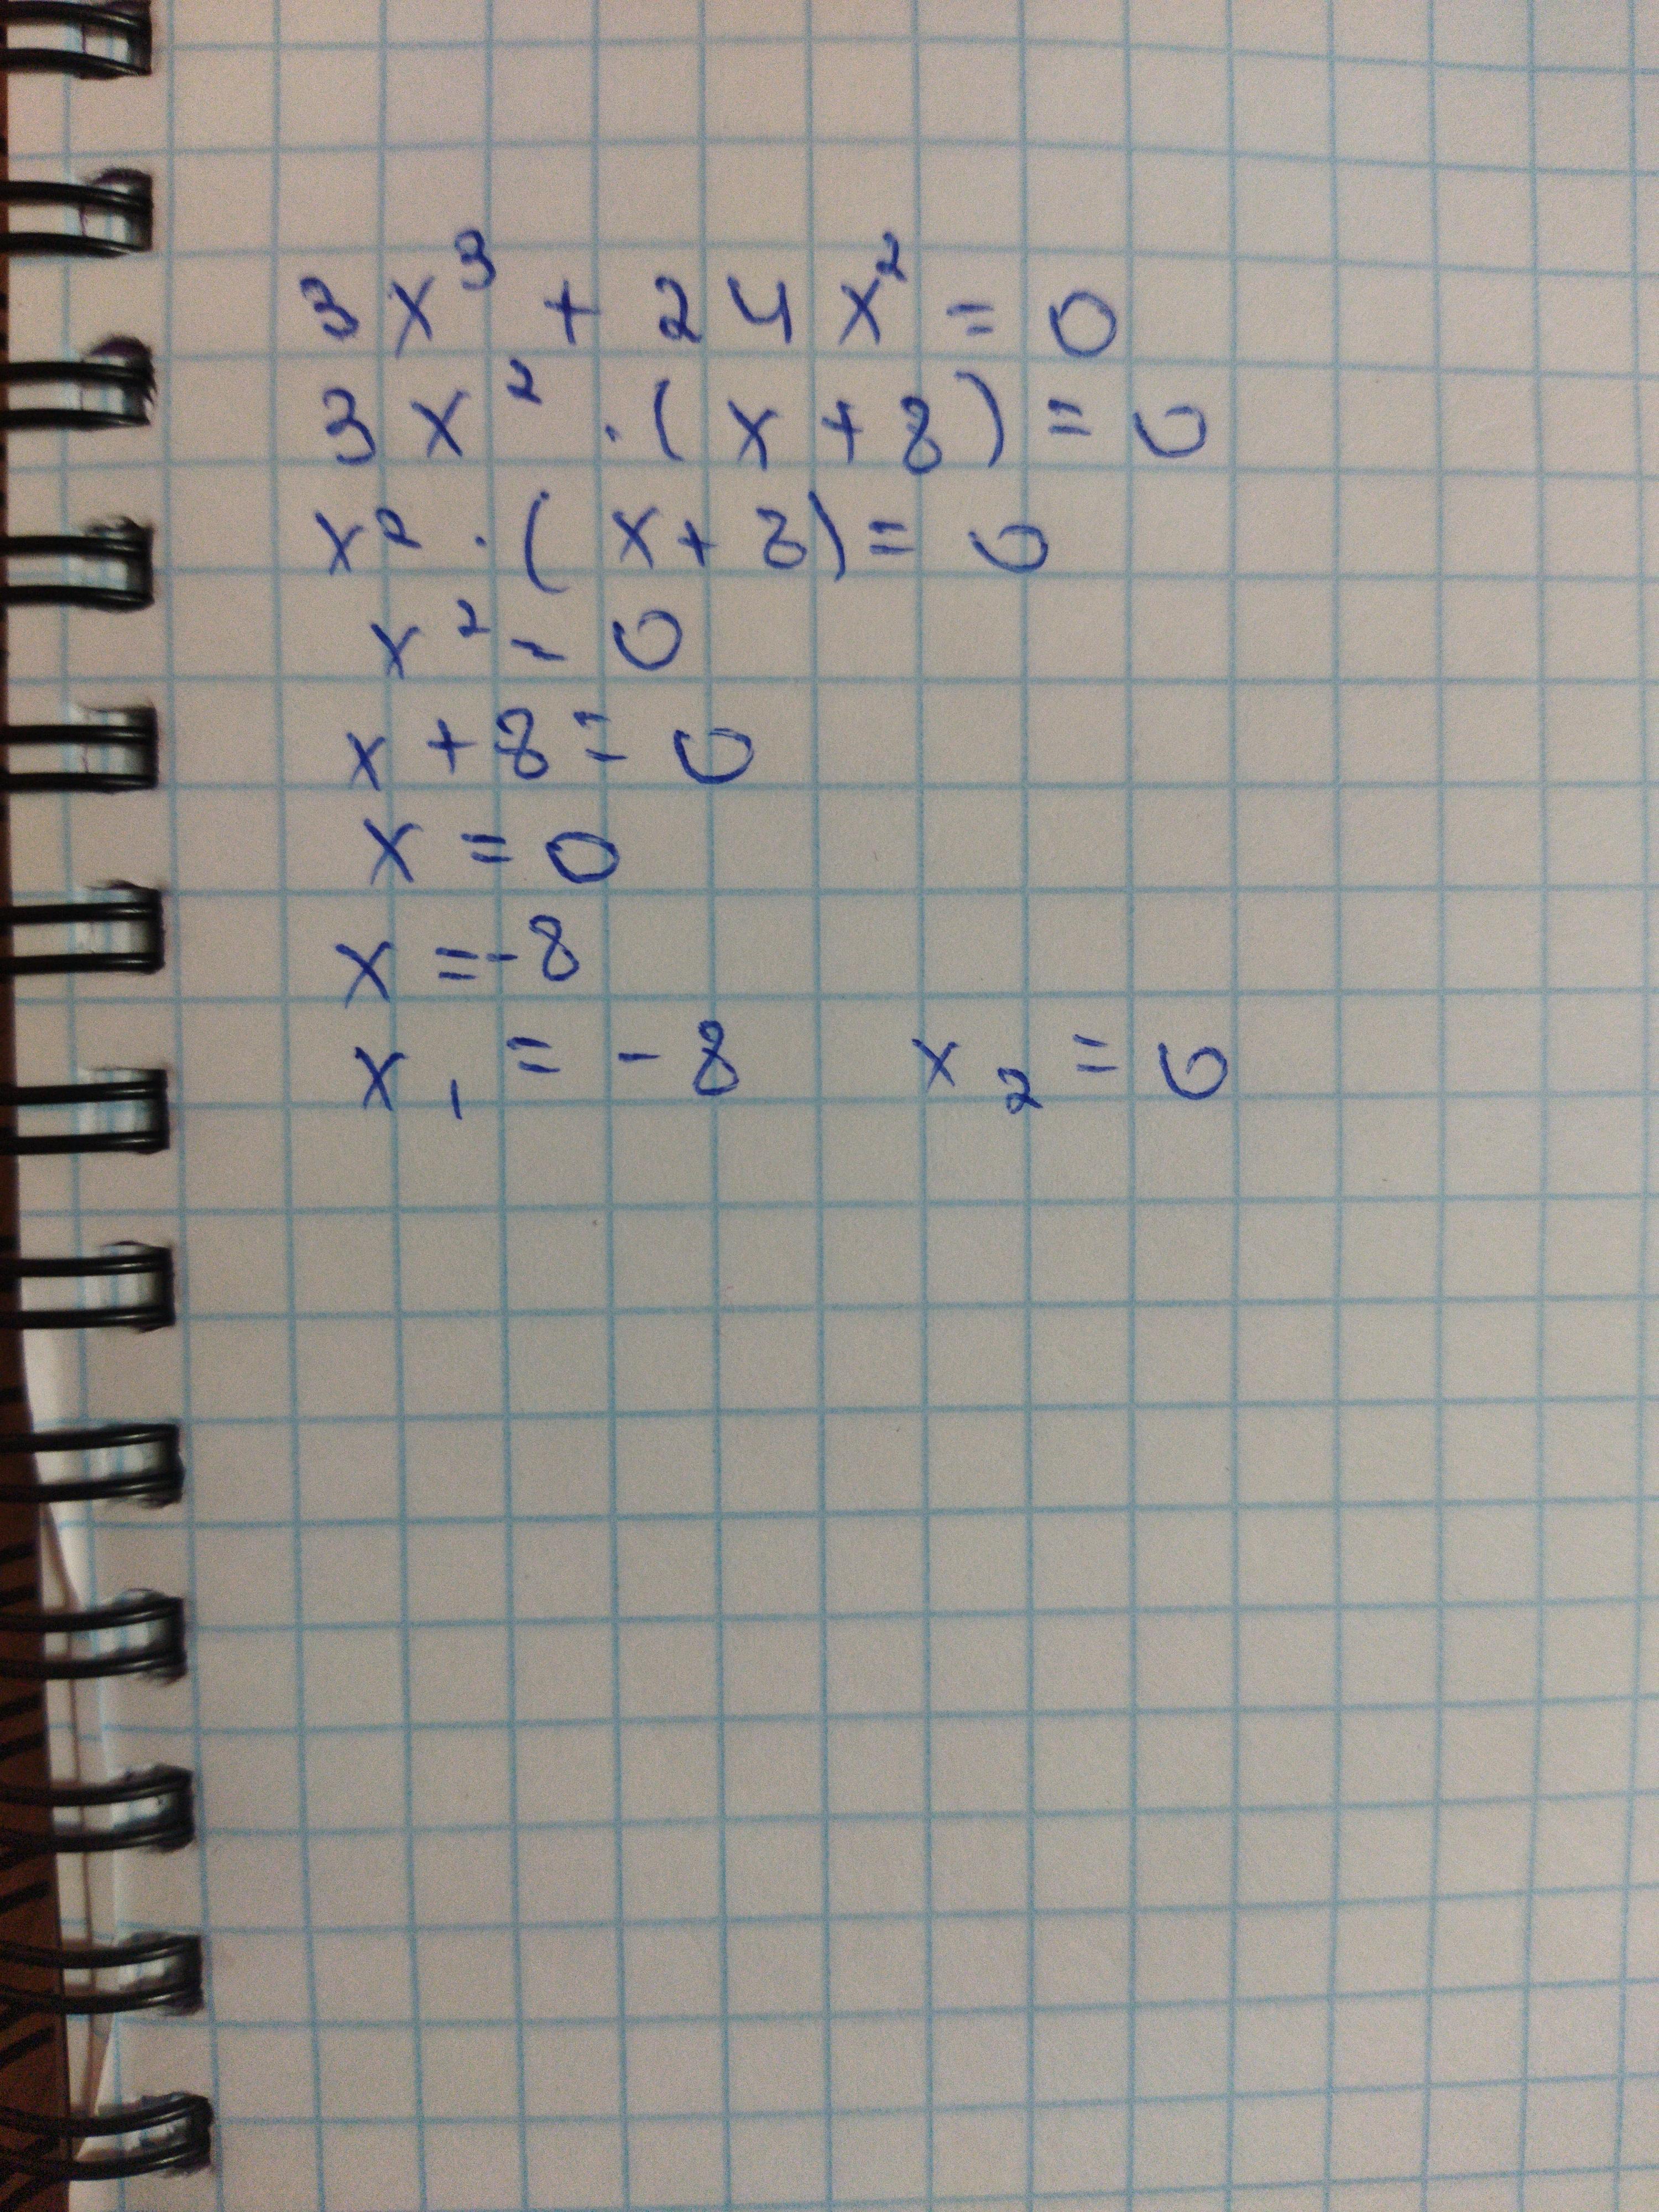 3x³ + 24x² = 0
3x² · (x + 8) = 0
x² · (x + 8) = 0
x² = 0
x + 8 = 0
x = 0
x = -8
x₁ = -8 x₂ = 0